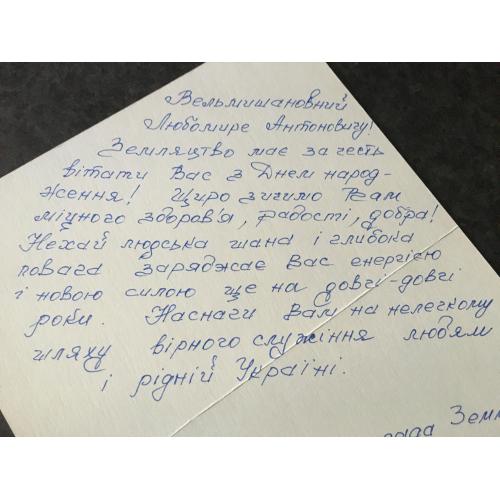 Вельмишановний
Любомире Антоновичу!
Земляцтво має за честь
вітати Вас з Днем народ-
ження! Щиро зичимо Вам
міцного здоров'я, радості, добра!
Нехай людська шана і глибока
повага заряджає Вас енергією
і новою силою ще на довгі-довгі
роки. Наснаги Вам на нелегкому
шляху вірного служіння людям
і рідній Україні.
Рада Земл